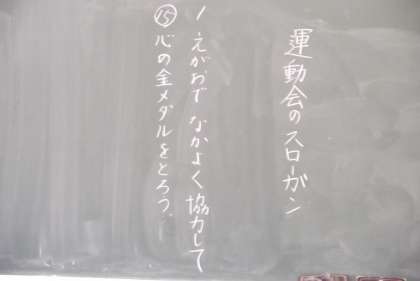 運動会のスローガン
1 えがおで なかよく 協力して
⑮ 心の金メダルをとろう。